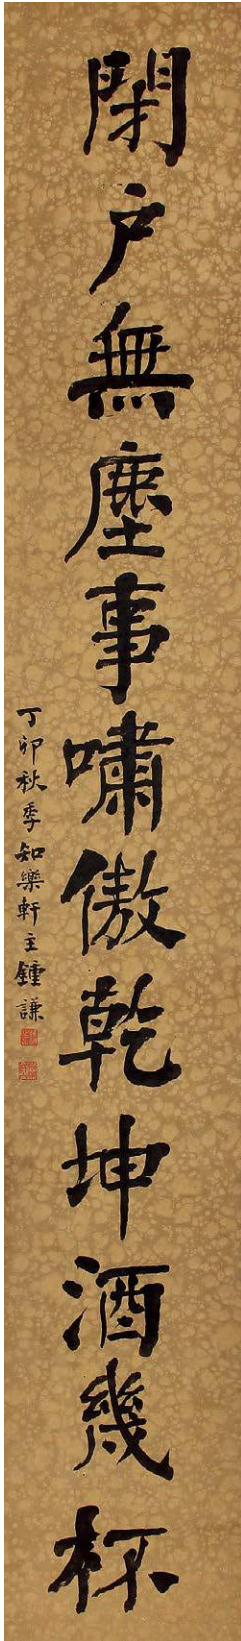 閉户無塵事嘯傲乾坤酒幾杯
丁卯秋季知樂軒主鍾謙